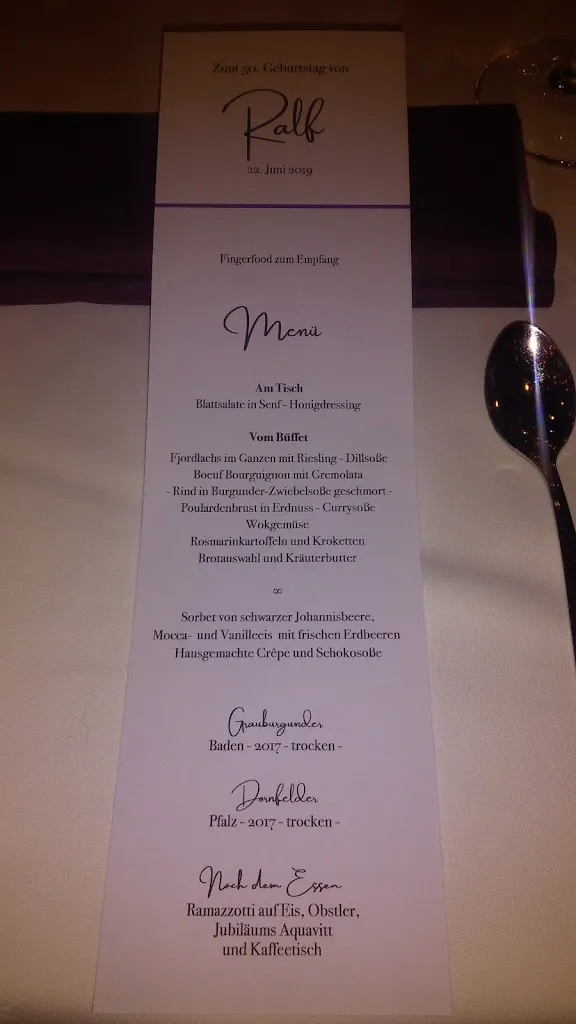 Zum 50. Geburtstag von
Ralf
22. Juni 2019
Fingerfood zum Empfang
Menü
Am Tisch
Blattsalate in Senf - Honigdressing
Vom Büffet
Fjordlachs im Ganzen mit Riesling - Dillsoße
Boeuf Bourguignon mit Gremolata
- Rind in Burgunder-Zwiebelsoße geschmort -
Poulardenbrust in Erdnuss - Currysoße
Wokgemüse
Rosmarinkartoffeln und Kroketten
Brotauswahl und Kräuterbutter
∞
Sorbet von schwarzer Johannisbeere,
Mocca- und Vanilleeis mit frischen Erdbeeren
Hausgemachte Crêpe und Schokosoße
Grauburgunder
Baden - 2017 - trocken -
Dornfelder
Pfalz - 2017 - trocken -
Nach dem Essen
Ramazzotti auf Eis, Obstler,
Jubiläums Aquavitt
und Kaffeetisch